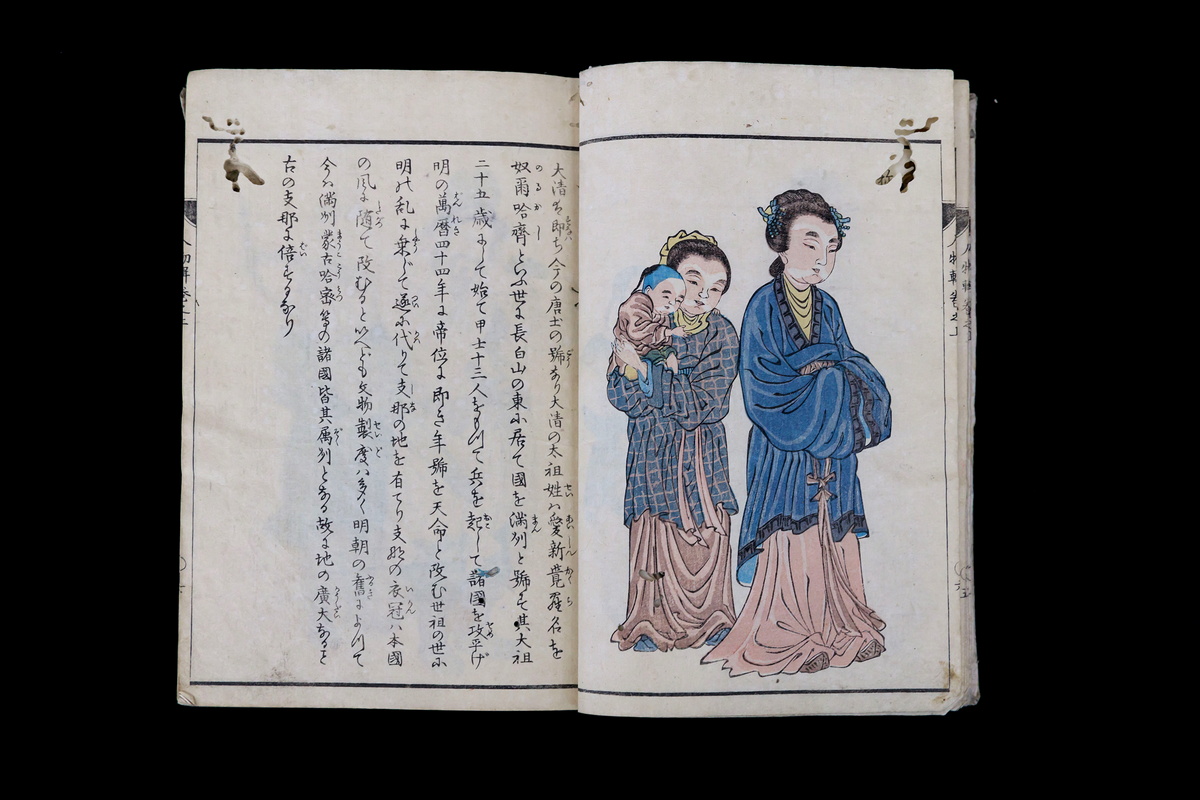 大清は即ち今の唐土の號あり大清の太祖姓ハ愛新覺羅名を
奴爾哈齊といふ世々長白山の東に居て國を滿洲と號す其太祖
二十五歳にして始て甲士十三人をもつて兵を起して諸國を攻平げ
明の萬曆四十四年に帝位に即き年號を天命と改む世祖の世に
明の乱に乗じて遂に代りて支那の地を有てり支那の衣冠ハ本國
の風に随て改むるといへども文物製度ハ多く明朝の舊によつて
今ハ滿洲蒙古哈密等の諸國皆其属州となる故に地の廣大なること
古の支那に倍するなり